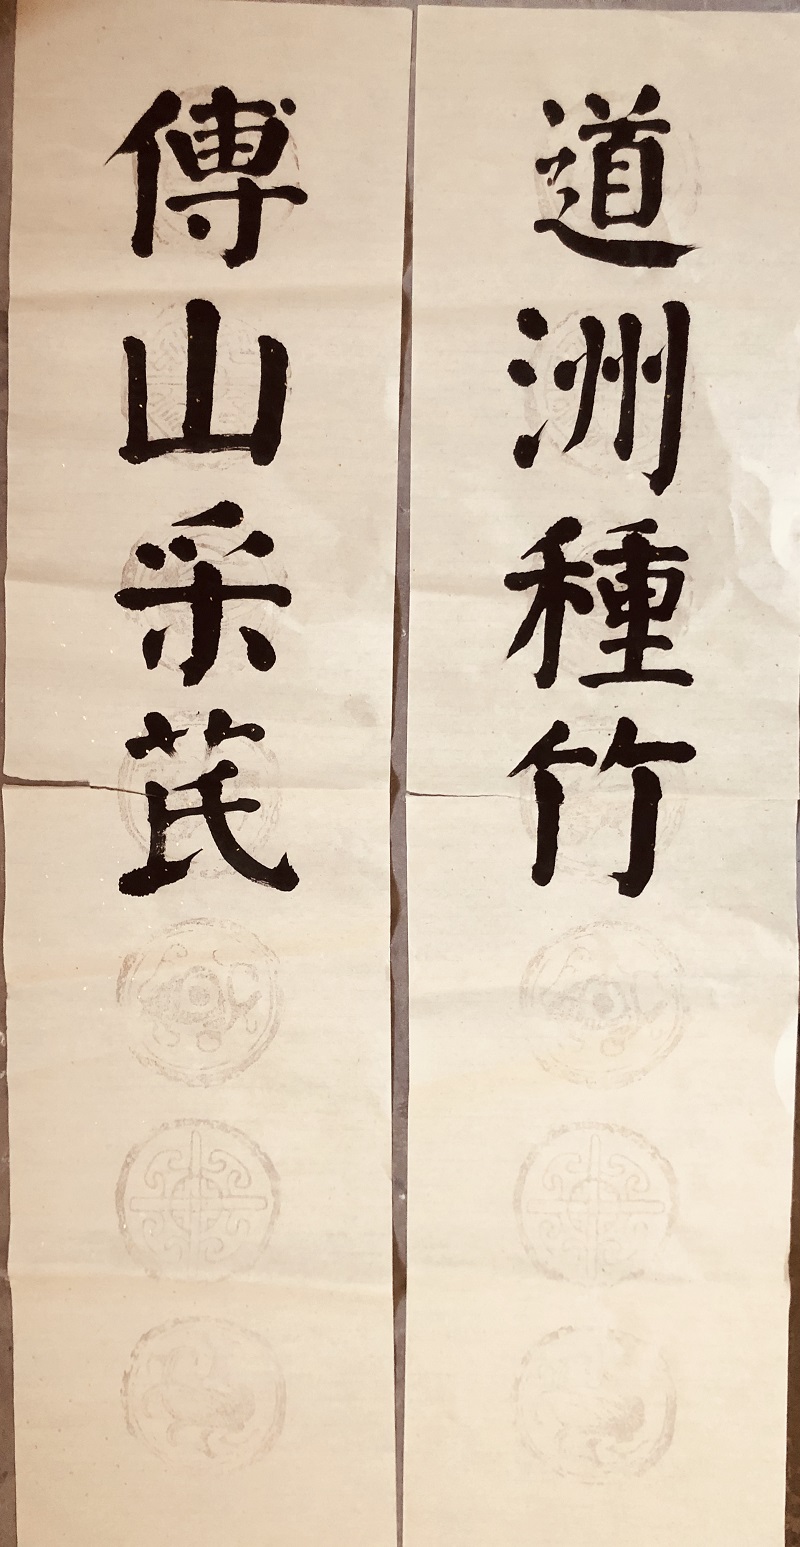 道洲種竹
傅山采芪